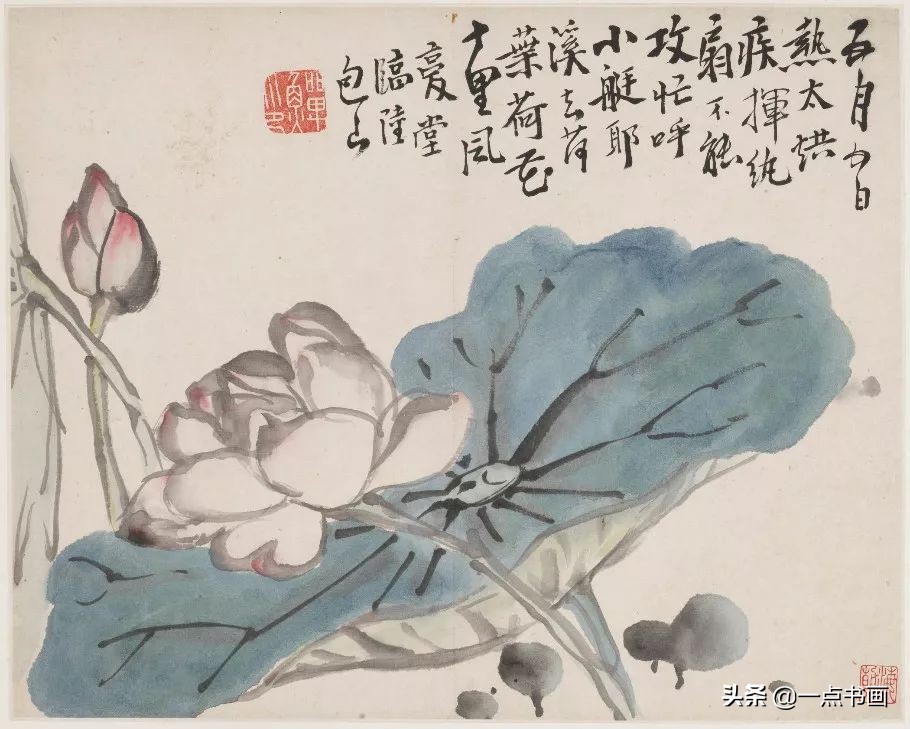 五月日
熱太烘
疾揮紈
扇不能
攻忙呼
小艇耶
溪去荷
葉荷花
十里風
堂
臨陸
包山
头条 @一点书画